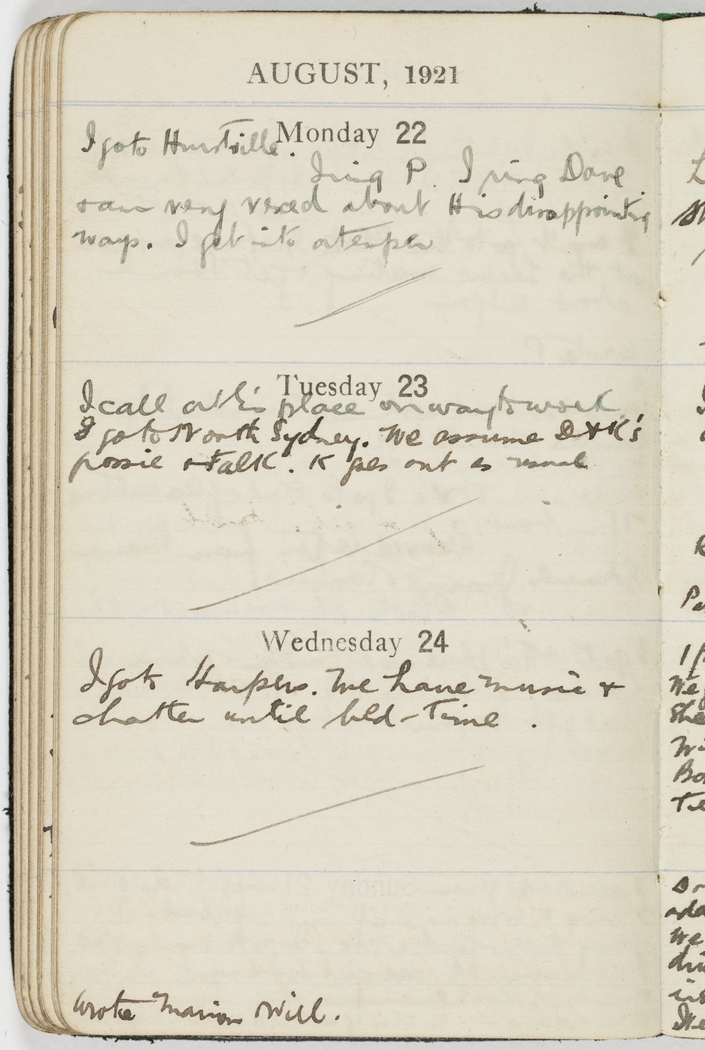 AUGUST, 1921
Monday 22
I go to Hurstville.
I ring P. I ring Dave
& am very vexed about His disappointing
ways. I get into a temper
Tuesday 23
I call at K's place on way to work.
I go to North Sydney. We assume D & K's
possie & Talk. K goes out as usual
Wednesday 24
I go to Harpers. We have music &
chatter until bed-time.
Wrote Marion Will.